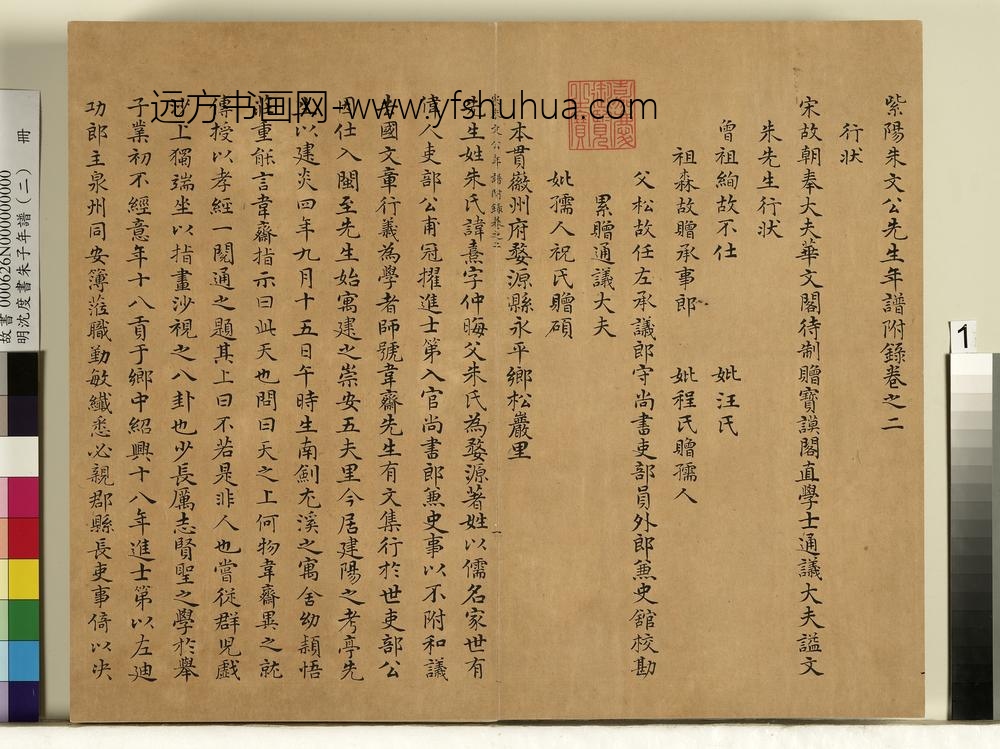 紫陽朱文公先生年譜附錄卷之二
行狀
宋故朝奉大夫華文閣待制贈寶謨閣直學士通議大夫謚文
朱先生行狀
曾祖絢故不仕 妣汪氏
祖森故贈承事郎 妣程氏贈孺人
父松故任左承議郎守尚書吏部員外郎兼史館校勘
累贈通議大夫
妣孺人祝氏贈碩
本貫徽州府婺源縣永平鄉松巖里
文公年譜附錄卷之二
一
先生姓朱氏諱熹字仲晦父朱氏為婺源著姓以儒名家世有
偉人吏部公甫冠擢進士第入官尚書郎兼史事以不附和議
去國文章行義為學者師號韋齋先生有文集行於世吏部公
因仕入閩至先生始寓建之崇安五夫里今居建陽之考亭先
生以建炎四年九月十五日午時生南劍尤溪之寓舍幼穎悟
莊重能言韋齋指示曰此天也問曰天之上何物韋齋異之就
傅授以孝經一閱通之題其上曰不若是非人也嘗從群兒戲
沙上獨端坐以指畫沙視之八卦也少長厲志賢聖之學於舉
子業初不經意年十八貢于鄉中紹興十八年進士第以左迪
功郎主泉州同安簿蒞職勤敏纖悉必親郡縣長吏事倚以决
远方书画网-www.yfshuhua.com
故書 000626N000000000
明沈度書朱子年譜(二) 冊
1